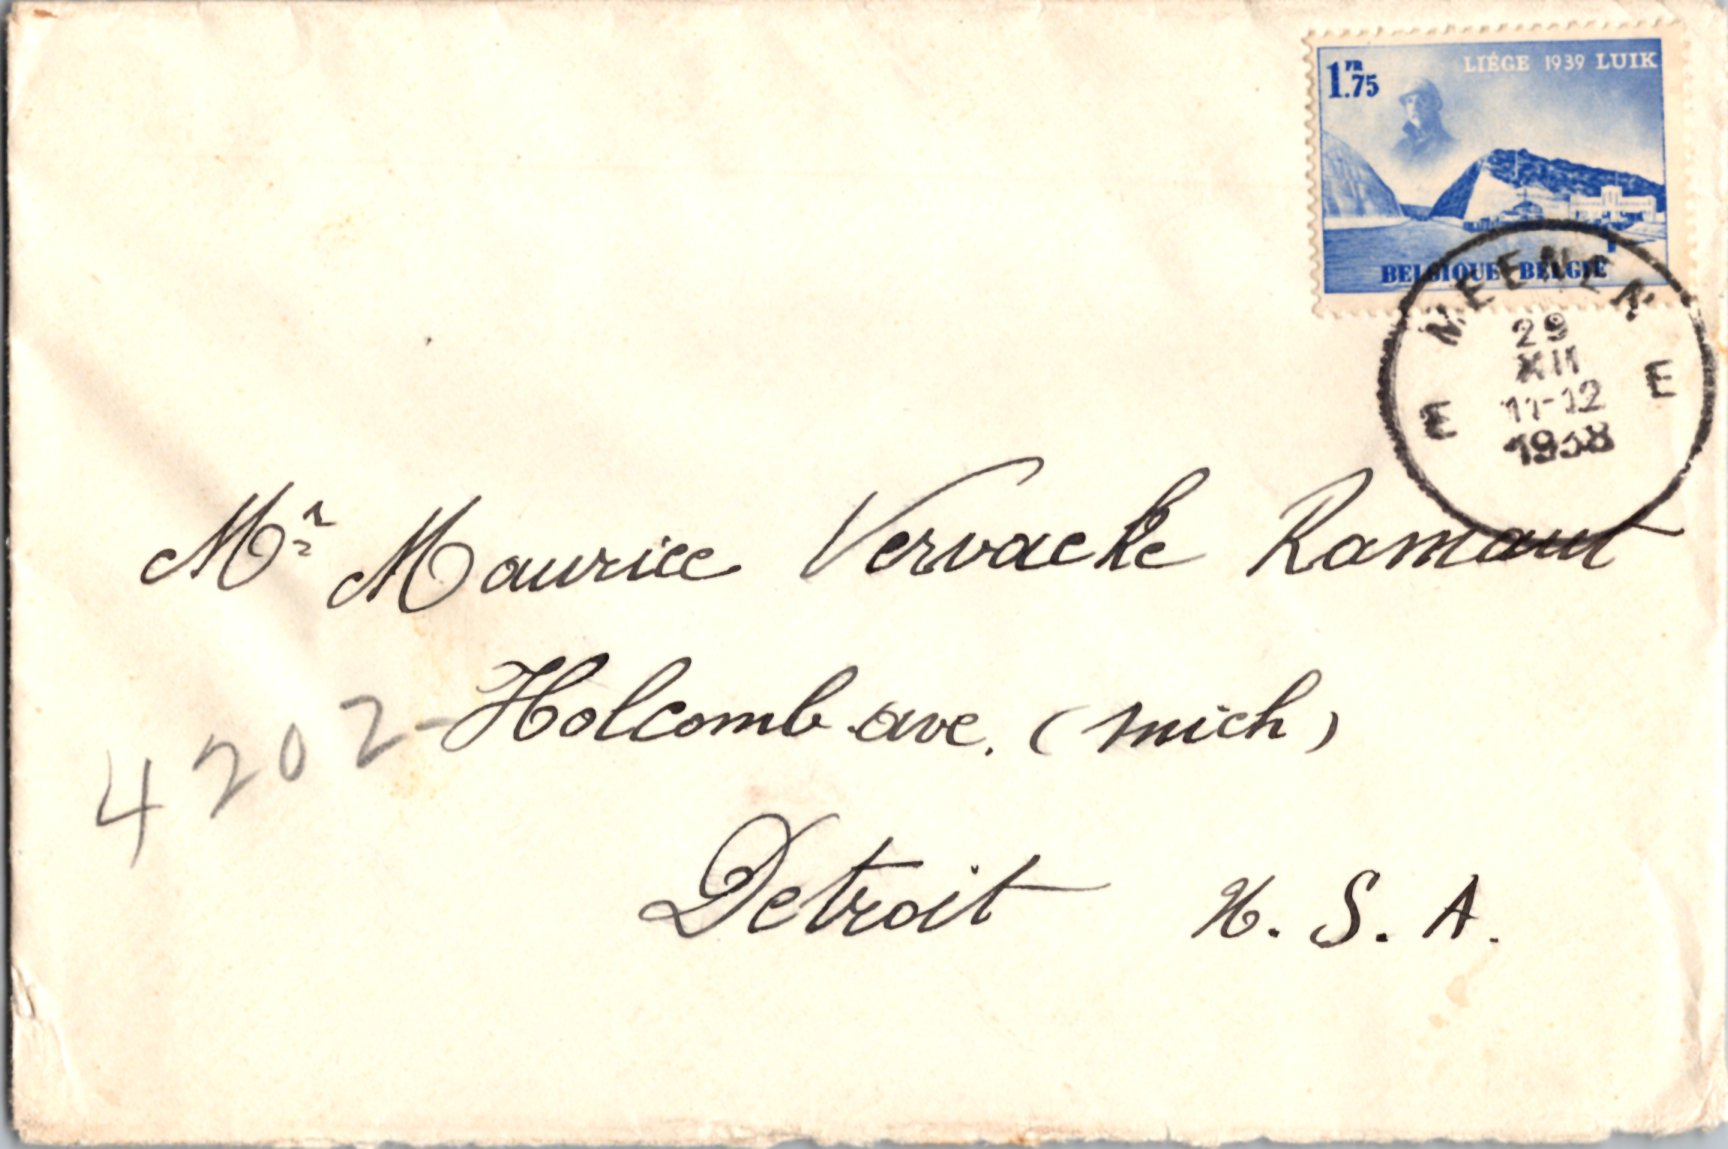 1FR.75
LIÉGE 1939 LUIK
BELGIQUE-BELGIË
MEENEN
29
XII
11-12
1938
E E
Mr Maurice Vervacke Ramaut
4202-Holcomb ave. (mich)
Detroit U.S.A.